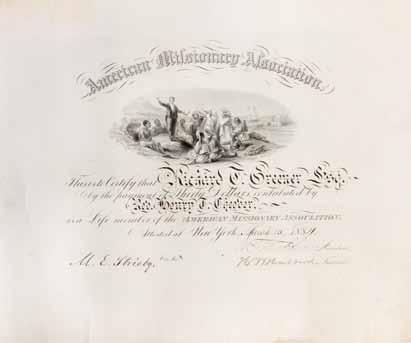 American Missionary Association.
This is to Certify that Richard T. Greener Esq.
by the payment of Thirty Dollars contributed by
Rev. Henry T. Cheever,
is a Life member of the AMERICAN MISSIONARY ASSOCIATION.
Attested at New York, March 15, 1884.
M. E. Strieby,